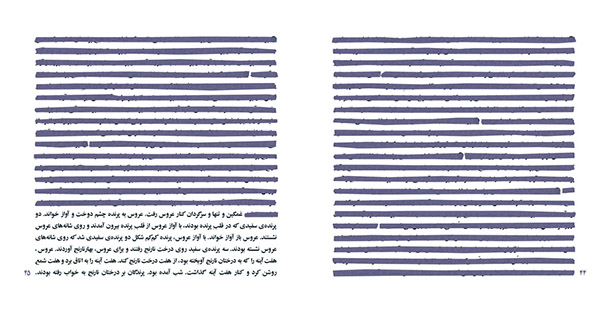 غمگین و تنها و سرگردان کنار عروس رفت. عروس به پرنده چشم دوخت و آواز خواند. دو
پرنده‌ی سفیدی که در قلب پرنده بودند، با آواز عروس از قلب پرنده بیرون آمدند و روی شانه‌های عروس
نشستند. عروس باز آواز خواند. با آواز عروس، پرنده کم‌کم شکل دو پرنده‌ی سفیدی شد که روی شانه‌های
عروس نشسته بودند. سه پرنده‌ی سفید، روی درخت نارنج رفتند و برای عروس، بهارنارنج آوردند. عروس،
هفت آینه را که به درختان نارنج آویخته بود، از هفت درخت نارنج کند. هفت آینه را به اتاق برد و هفت شمع
روشن کرد و کنار هفت آینه گذاشت. شب آمده بود. پرندگان بر درختان نارنج به خواب رفته بودند.
۲۵
۲۴